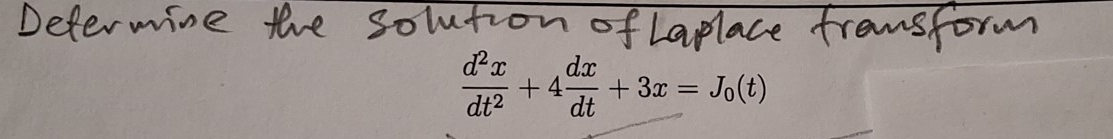 Determine the solution of Laplace transform
$\frac{d^2x}{dt^2} + 4\frac{dx}{dt} + 3x = J_0(t)$